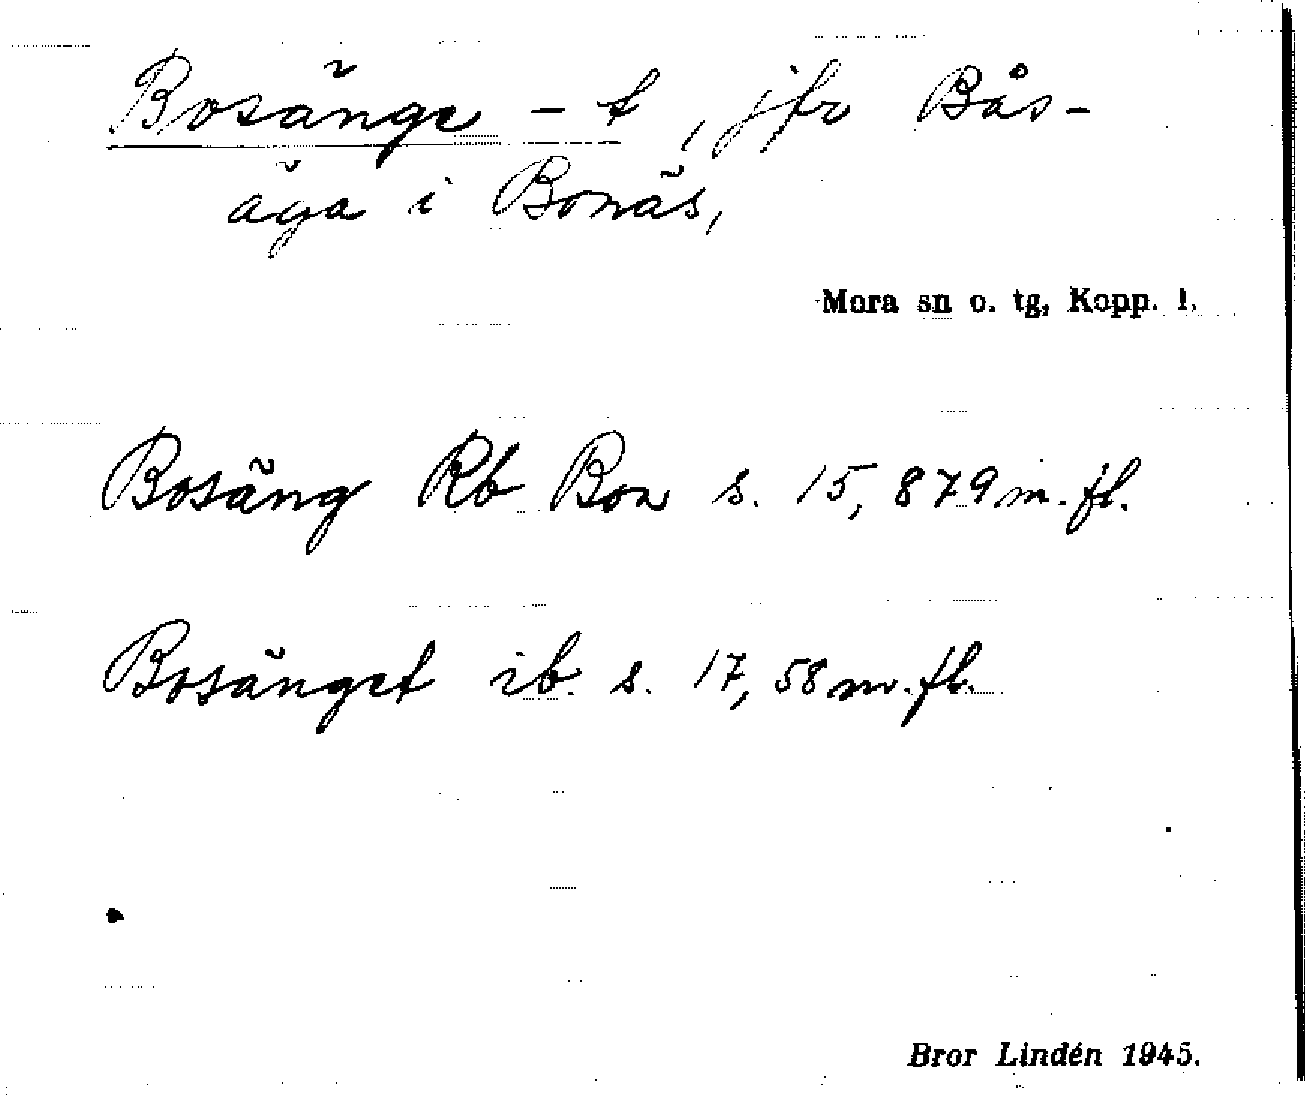 Bosänge -t, jfr Bås-
äga i Bonäs,
Mora sn o. tg, Kopp. l.
Bosäng Rb Bon s. 15, 879 m. fl.
Bosänget ib. s. 17, 58 m. fl.
Bror Lindén 1945.